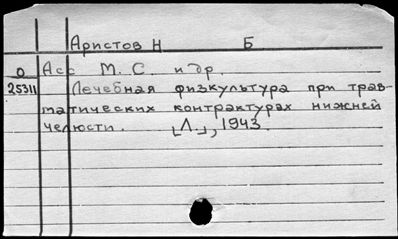 Аристов Н Б
О Асс М. С. и др.
25311 Лечебная физкультура при трав-
матических контрактурах нижней
челюсти. [Л.], 1943.